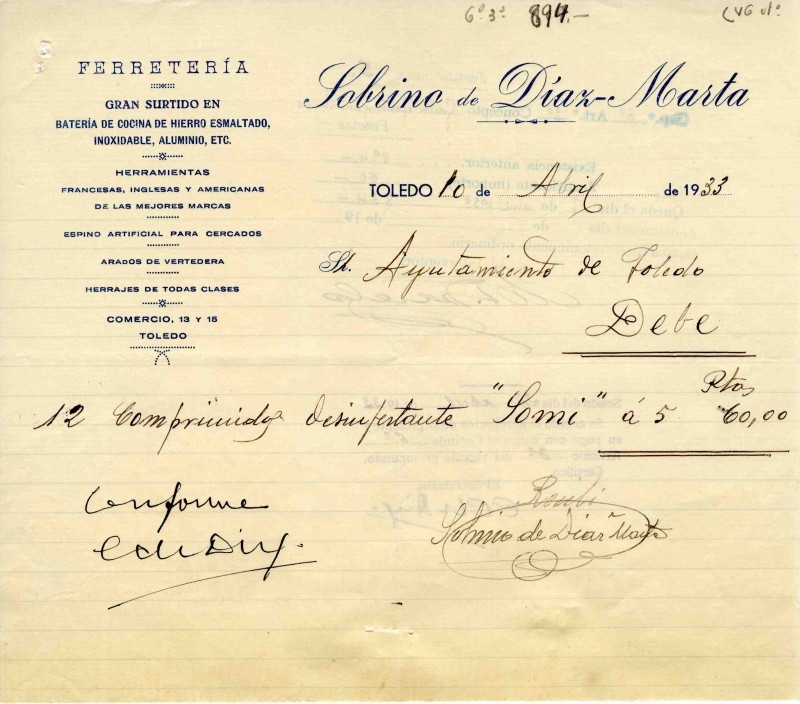 6º 3º 894.-
FERRETERÍA
GRAN SURTIDO EN
BATERÍA DE COCINA DE HIERRO ESMALTADO,
INOXIDABLE, ALUMINIO, ETC.
HERRAMIENTAS
FRANCESAS, INGLESAS Y AMERICANAS
DE LAS MEJORES MARCAS
ESPINO ARTIFICIAL PARA CERCADOS
ARADOS DE VERTEDERA
HERRAJES DE TODAS CLASES
COMERCIO, 13 Y 15
TOLEDO
Sobrino de Díaz-Marta
TOLEDO 10 de Abril de 1933
Ayuntamiento de Toledo
Debe
Ptas
12 Comprimidos desinfestante "Somi" á 5 60,00
Conforme
Recibí
Sobrino de Díaz Marta